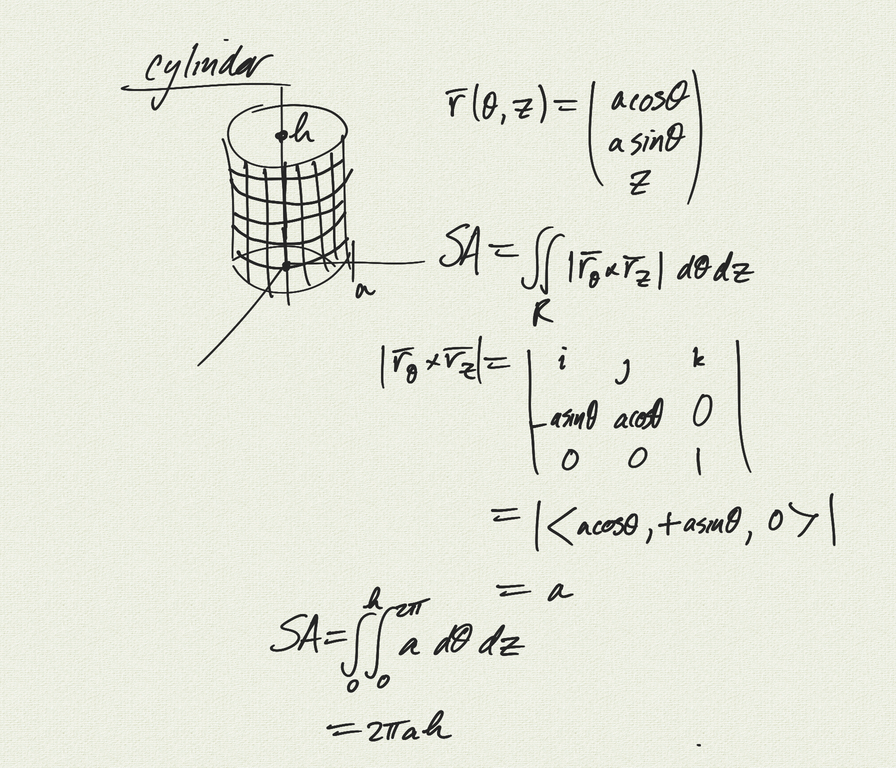 cylinder
h
a
r̄(θ, z) = (acosθ
asinθ
z)
SA = ∬ |r̄_θ × r̄_z| dθ dz
R
|r̄_θ × r̄_z| = | i j k
-asinθ acosθ 0
0 0 1 |
= |<acosθ, +asinθ, 0>|
= a
SA = ∫₀ʰ ∫₀^2π a dθ dz
= 2πah